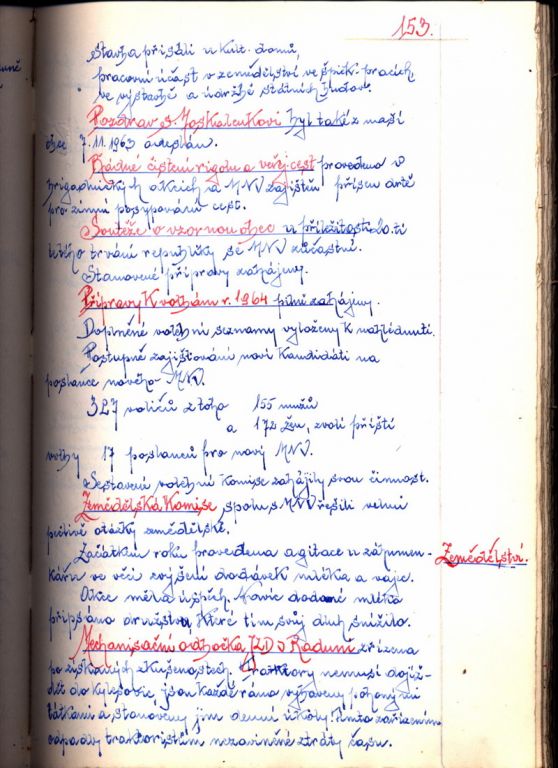 153.
Stavba přísálí u kult. domu,
pracovní účast v zemědělství, ve špičk. pracích
ve výstavbě a údržbě státních budov.
Pozdrav s. Moskalenkovi byl také z naší
obce 7.11.1963 odeslán.
Řádné čistení rigolu a veřej. cest provedeno v
brigadnických akcích a MNV zajištěn přísun
pro zimní posypování cest.
Soutěže o vzornou obec u příležitosti 20. ti
letého trvání republiky se MNV zúčastní.
Stanovené přípravy zahájeny.
Přípravy k volbám r. 1964 pilně zahájeny.
Doplněné volební seznamy vyloženy k nahlédnutí.
Postupné zajišťování noví kandidáti na
poslance nového MNV.
327 voličů z toho 155 mužů
a 172 žen, zvolí příští
volby 17 poslanců pro nový MNV.
Sestavené volební komise zahájily svou činnost.
Zemědělská komise spolu s MNV řešili velmi
pečlivě otázky zemědělské.
Začátkem roku provedena agitace u záhumen-
kářů ve věci zvýšení dodávek mléka a vajec.
Zemědělství.
Akce měla úspěch. Navíc dodané mléko
připsáno družstvu, které tím svůj dluh snížilo.
Mechanisační odbočka JZD v Raduni zřízena
po získaných zkušenostech. Traktory nemusí dojíž-
dět do Kylešovic jsou každé ráno vybaveny pohonými
látkami a stanoveny jim denní úkoly. Tímto zařízením
odpadly traktoristům nezaviněné ztráty času.